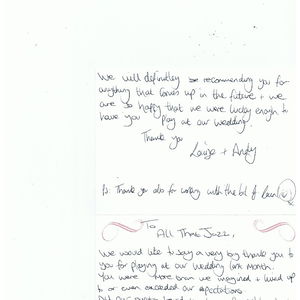 We will definitley be recommending you for
anything that comes up in the future + we
are so happy that we were lucky enough to
have you play at our wedding.
Thank you
Louise + Andy
PS. Thank you also for coping with the bit of rain
To
All That Jazz,
We would like to say a very big thank you to
you for playing at our wedding last month.
You were more than we imagined + lived up
to or even exceeded our expectations